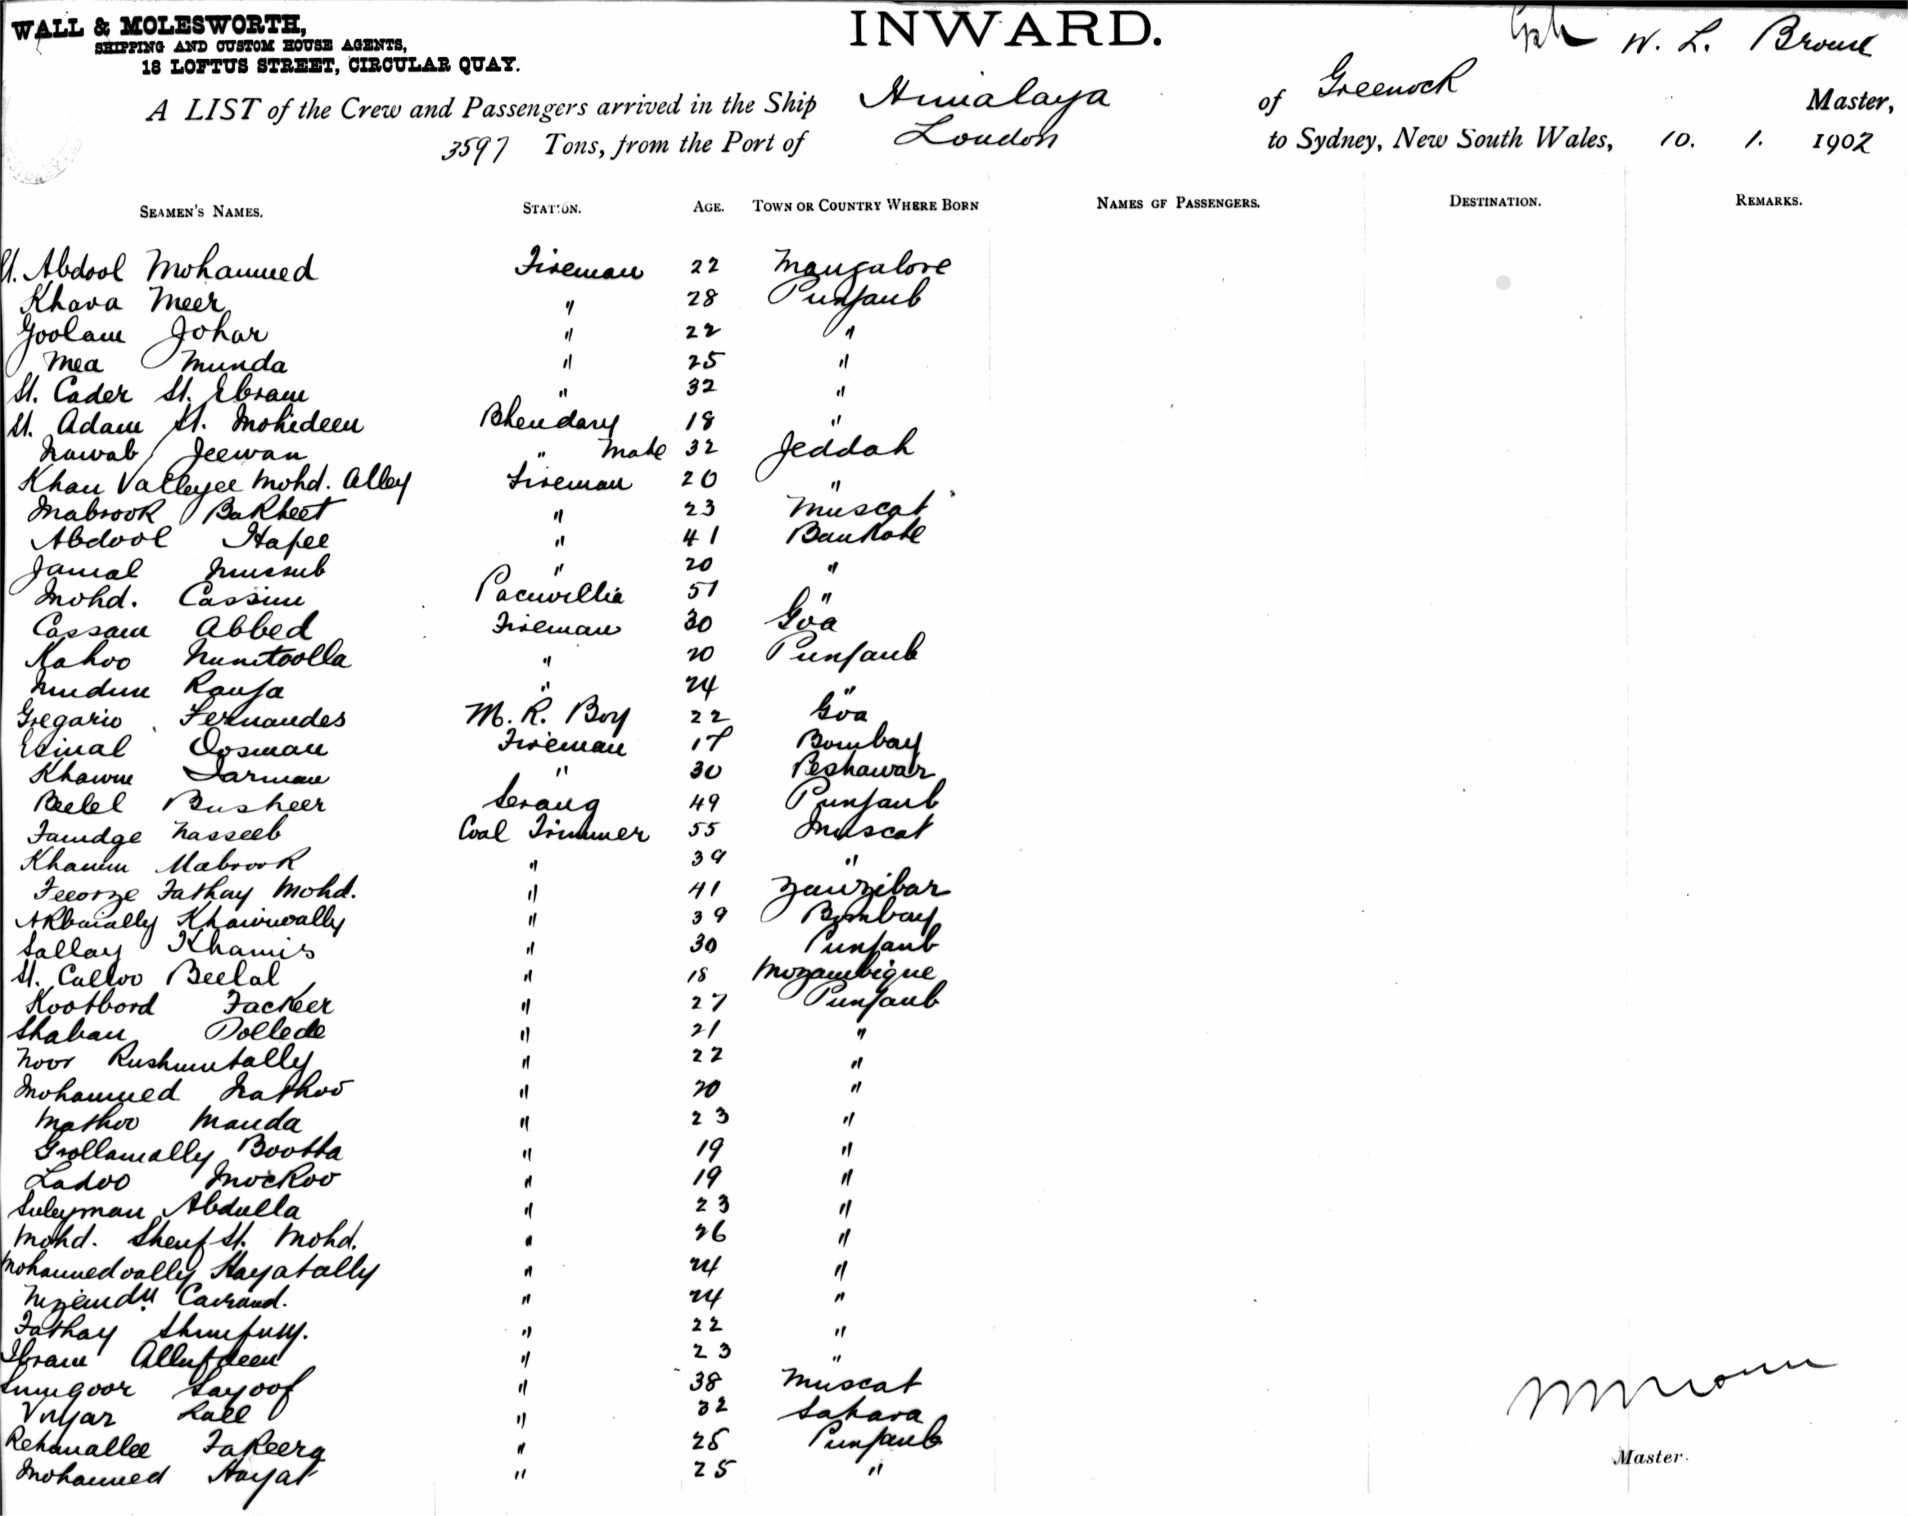 WALL & MOLESWORTH,
SHIPPING AND CUSTOM HOUSE AGENTS,
18 LOFTUS STREET, CIRCULAR QUAY.
INWARD.
W. L. Broun
A LIST of the Crew and Passengers arrived in the Ship Himalaya of Greenock Master,
3597 Tons, from the Port of London to Sydney, New South Wales, 10. 1. 1902
SEAMEN'S NAMES. STATION. AGE. TOWN OR COUNTRY WHERE BORN NAMES OF PASSENGERS. DESTINATION. REMARKS.
St. Abdool Mohammed Fireman 22 Mangalore
Khava Meer " 28 Punjaub
Goolam Johar " 22 "
Mea Munda " 25 "
St. Cader St. Ebram " 32 "
St. Adam St. Mohideen Bhendary 18 "
Nawab Jeewan " Mate 32 Jeddah
Khan Valleyee Mohd. Alley Fireman 20 "
Mabrook Bakheet " 23 Muscat
Abdool Hafee " 41 Bankote
Jamal " 20 "
Mohd. Cassim 51 "
Cassam Abbed Fireman 30 Goa
Kahoo " 20 Punjaub
Ranja " 24 "
Gregario Fernandes M. R. Boy 22 Goa
Esinal Oosman Fireman 17 Bombay
" 30 Peshawar
Beelel Busheer Serang 49 Punjaub
Nasseeb Coal Trimmer 55 Muscat
Khamm Mabrook " 39 "
Fathay Mohd. " 41 Zanzibar
" 39 Bombay
Sallay Khamis " 30 Punjaub
St. Culloo Beelal " 18 Mozambique
Kootbord Fackeer " 27 Punjaub
Shaban Dollede " 21 "
Noor " 22 "
Mohammed Nathoo " 20 "
Mathoo Manda " 23 "
Gollamally Bootta " 19 "
Ladoo Mockoo " 19 "
Suleyman Abdulla " 23 "
Mohd. St. Mohd. " 26 "
Mohammedvally Hayatally " 24 "
" 24 "
Fathay " 22 "
Ibram " 23 "
Sayoof " 38 Muscat
Lall " 32 Sahara
Rehmallee Fakeera " 25 Punjaub
Mohammed Hayat " 25 "
Master.